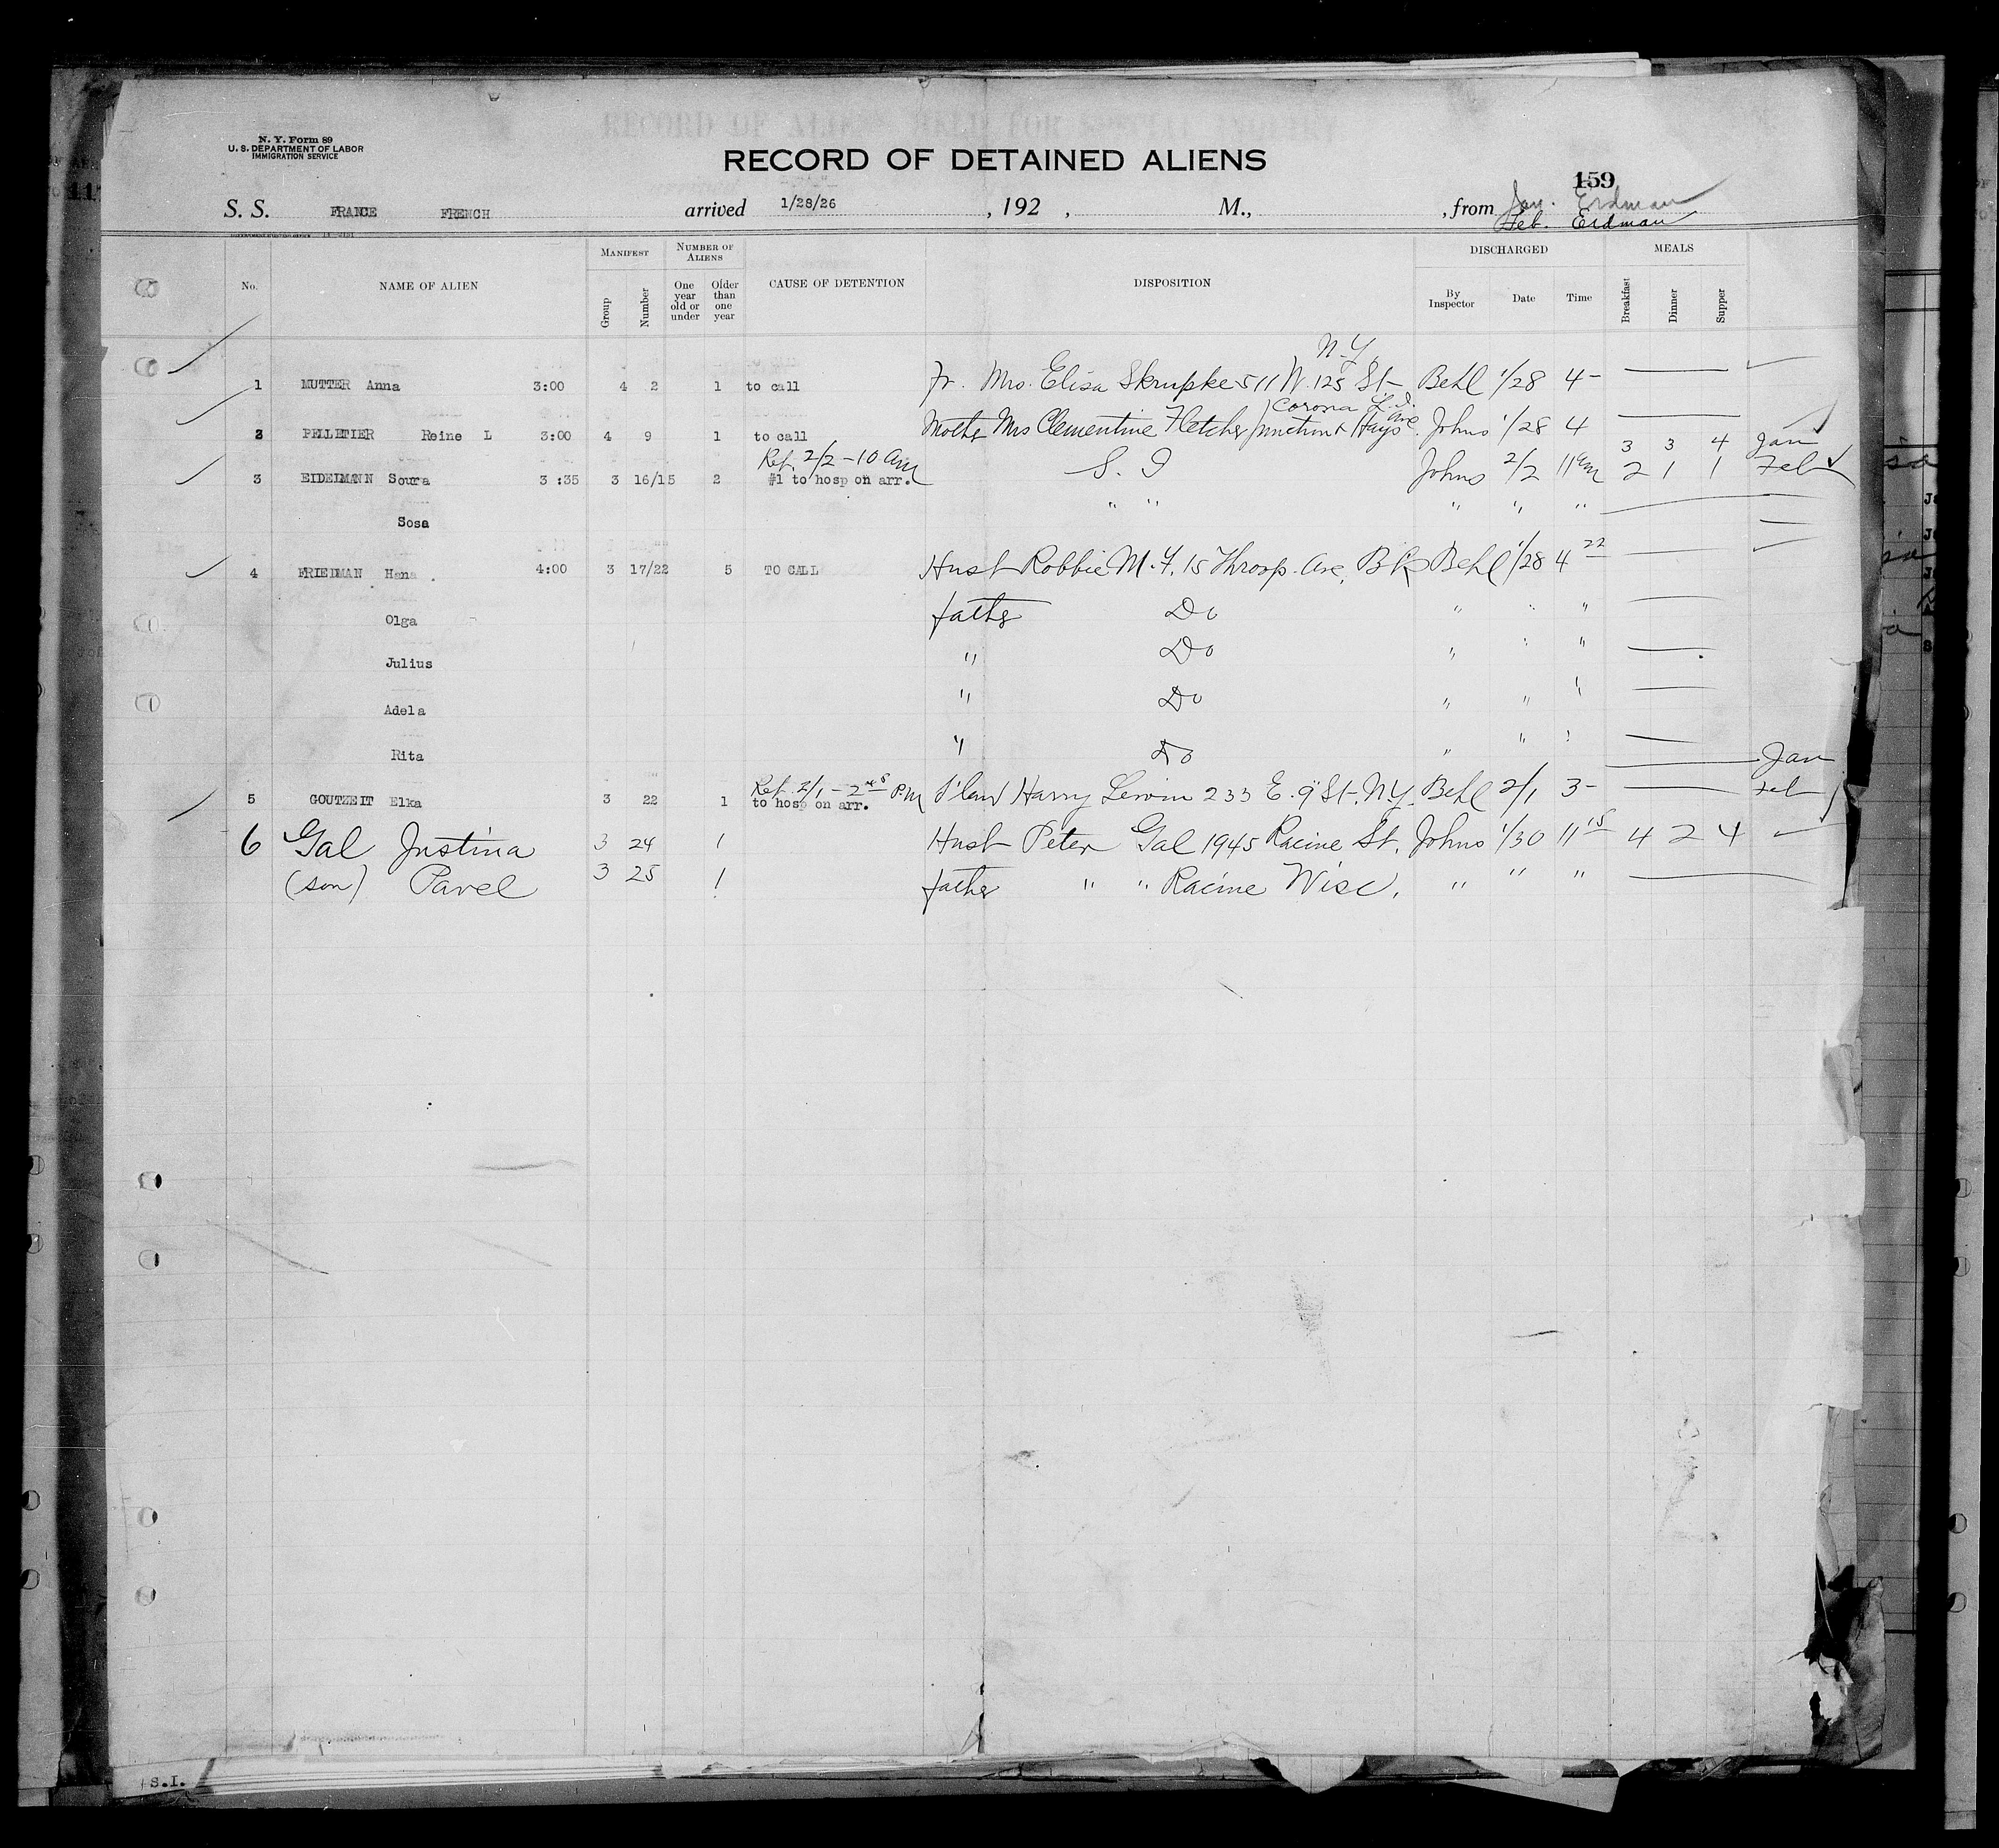 N. Y. Form 89
U. S. DEPARTMENT OF LABOR
IMMIGRATION SERVICE
RECORD OF DETAINED ALIENS
159
S. S. FRANCE FRENCH arrived 1/28/26 , 192 , M., , from Jan. Erdman
Feb. Erdman
No. NAME OF ALIEN MANIFEST Group Number NUMBER OF ALIENS One year old or under Older than one year CAUSE OF DETENTION DISPOSITION DISCHARGED By Inspector Date Time MEALS Breakfast Dinner Supper
N.Y.
1 MUTTER Anna 3:00 4 2 1 to call Fr. Mrs. Elisa Skrupke 511 W. 125 St Behl 1/28 4-
Corona L.I.
2 PELLETIER Reine L 3:00 4 9 1 to call Mother Mrs Clementine Fletcher Junction & Hays Ave. Johns 1/28 4
Ref. 2/2 - 10 Am 3 3 4 Jan
3 EIDELMANN Soura 3:35 3 16/15 2 #1 to hosp on arr. S. I Johns 2/2 11 am 2 1 1 Feb
Sosa " " " " "
4 FRIEDMAN Hana 4:00 3 17/22 5 TO CALL Husb Robbie M. F. 15 Throop Ave, Bk Behl 1/28 4 22
Olga father Do " " "
Julius " Do " " "
Adela " Do " " "
Rita " Do " " "
Ref. 2/1 - 2 45 P.M Jan
5 GOUTZEIT Elka 3 22 1 to hosp on arr. S'law Harry Lewin 233 E. 9 St. N.Y. Behl 2/1 3- Feb
6 Gal Justina 3 24 1 Husb Peter Gal 1945 Racine St. Johns 1/30 11 15 4 2 4
(son) Pavel 3 25 1 father " " Racine Wisc. " " "
S.I.